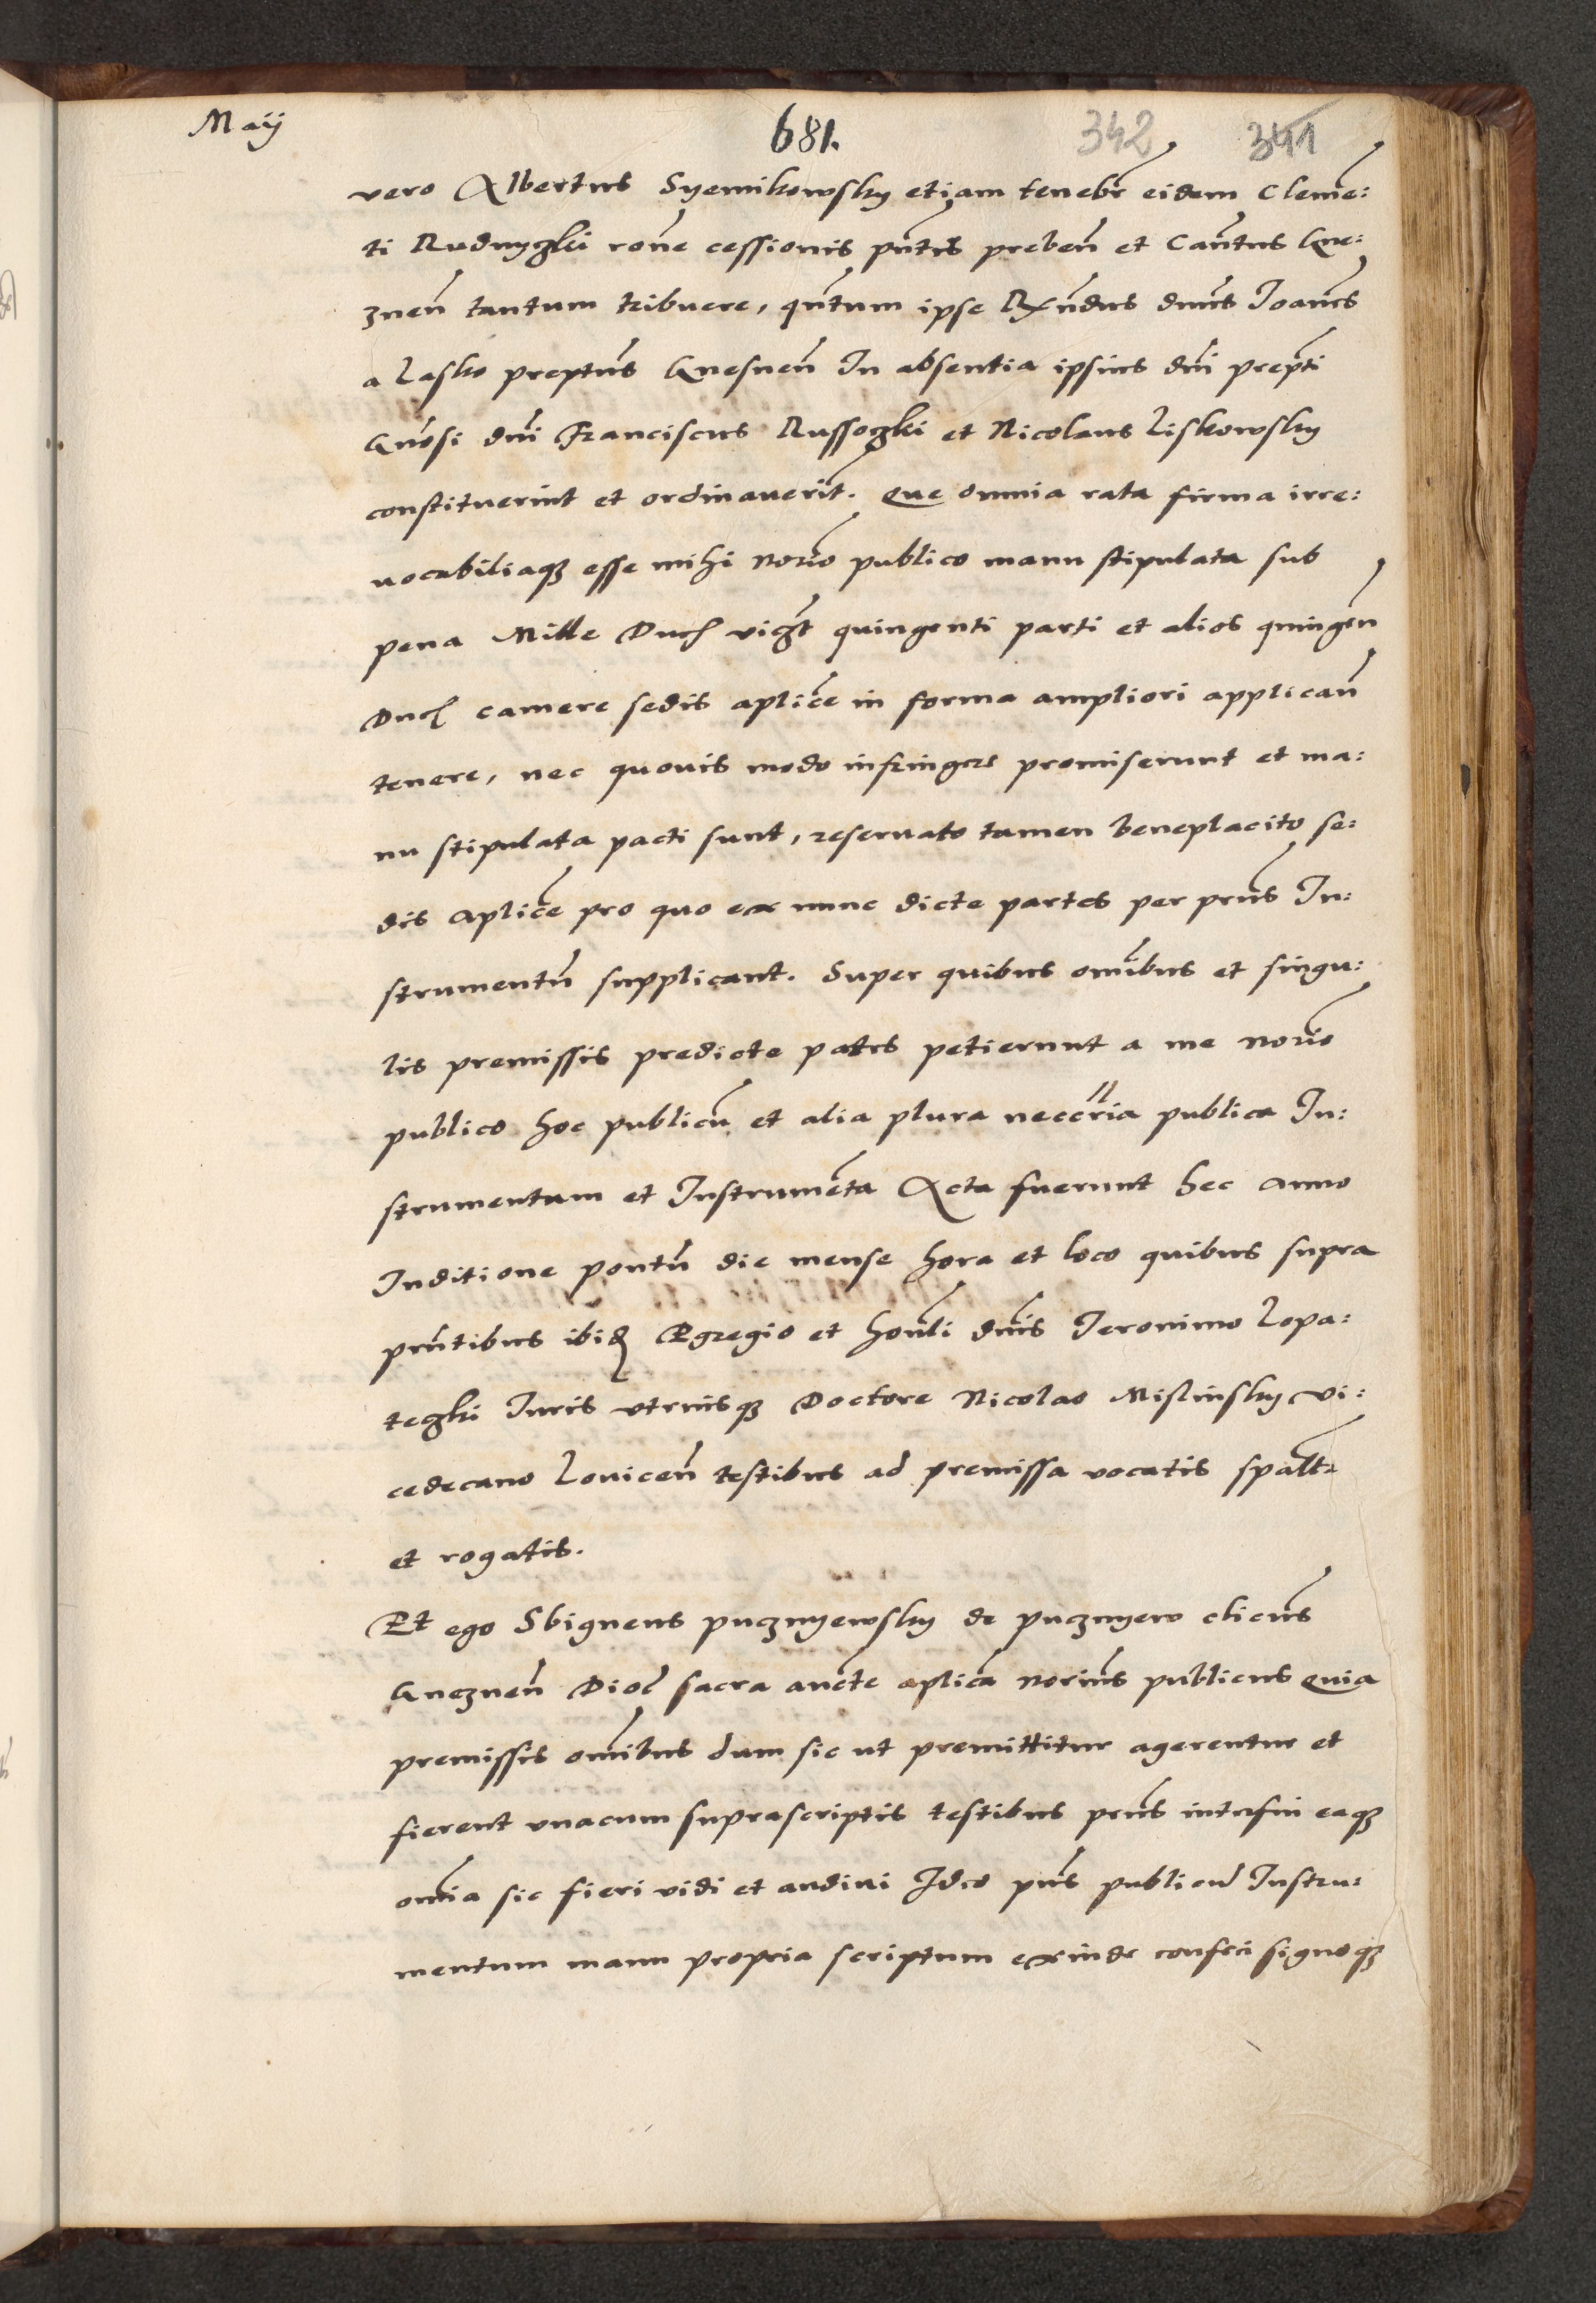 Maij
681.
342 341
vero Albertus Syemikowsky etiam tenebr̃ eidem Cleme͂:
ti Rudnyczki ron̄e cessionis pn̄tis preben̄ et Can̄tus Gne:
znen̄ tantum tribuere, qn̄tum ipse Rx̄ndus dn̄us Ioan̄es
a Lasko preptus̄ Gnesnen̄ In absentia ipsius dn̄i preptī
Gn̄osi dn̄i Franciscus Russoczki et Nicolaus Liskowsky
constituerint et ordinauerīt. Que omnia rata firma irre:
uocabiliaqȝ esse mihi norio̅ publico manu stipulata sub
pena Mille Duc̄ vicȝt̄ quingenti parti et alios quingen̄
Duc̄ camere sedis aplic̄e in forma ampliori applican̄
tenere, nec quouis modo infringere promiserunt et ma:
nu stipulata pacti sunt, reseruato tamen beneplacito se:
dis Aplic̄e pro quo ex nunc dicte partes per prn̄s In:
strumentū supplicant. Super quibus omn̄ibus et singu:
lis premissis predicte patrs petierunt a me norio̅
publico hoc publicū et alia plura neccr̄ia publica In:
strumentum et Instrumēta Acta fuerunt hec Anno
Inditione pontū die mense hora et loco quibus supra
prn̄tibus ibid̄ Egregio et Hon̄li dn̄is Ieronimo Lopa:
teczki Iuris vtriusqȝ Doctore Nicolao Mislinsky vi:
cedecano Louicen̄ testibus ad premissa vocatis spalt̄r
et rogatis.
Et ego Sbigneus pucznyewsky de puczniyew clicus̄
Gneznen̄ Dioc̄ sacra auct̄e aplic̄a norius̄ publicus Quia
premissis om̄ibus dum sic ut premittitur agerentur et
fierent vnacum suprascriptis testibus prn̄s intrfui eaqȝ
om̄ia sic fieri vidi et audiui Ideo pn̄s publicū Instru:
mentum manu propria scriptum exinde confeci signoqȝ